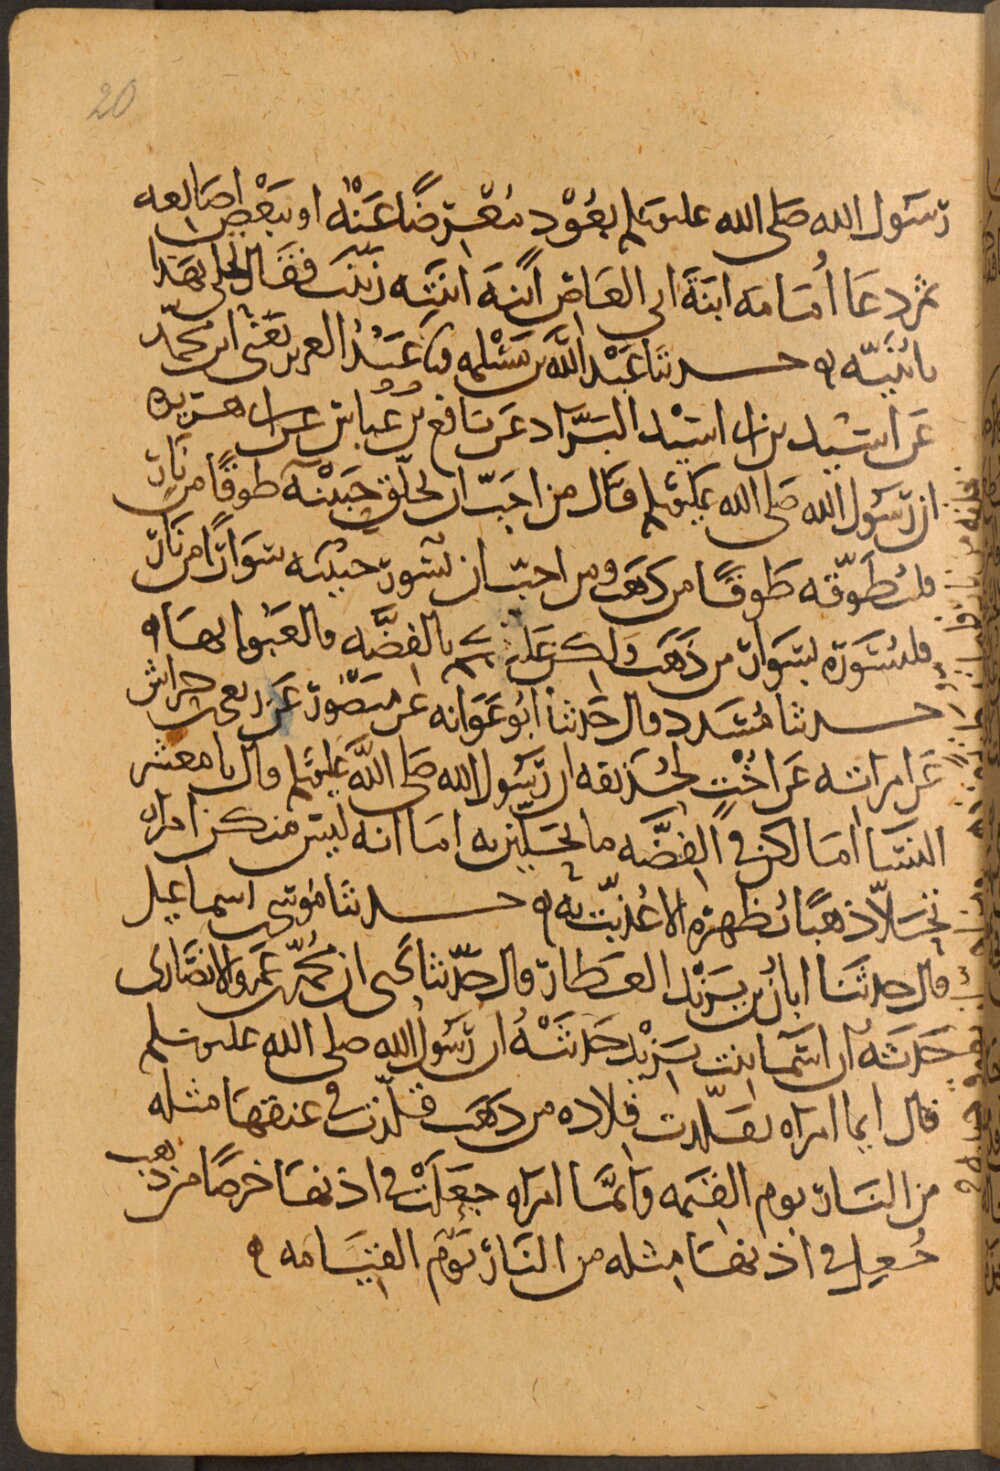 20
رسول الله صلى الله عليه وسلم بعود معرضا عنه او ببعض اصابعه
ثم دعا أمامه ابنة ابي العاص ابنة ابنته زينب فقال تحلي بهذا
يا بنيه ه حدثنا عبد الله بن مسلمه نا عبد العزيز يعني ابن محمد
عن اسيد بن ابي اسيد البراد عن نافع بن عباس عن ابي هريره
ان رسول الله صلى الله عليه وسلم قال من احب ان يحلق حبيبه طوقا من نار
فليطوقه طوقا من ذهب ومن احب ان يسور حبيبه سوارا من نار
فليسوره بسوار من ذهب ولكن عليكم بالفضه فالعبوا بها ه
حدثنا مسدد قال حدثنا ابو عوانه عن منصور عن ربعي بن حراش
عن امراته عن اخت لحذيفه ان رسول الله صلى الله عليه وسلم قال يا معشر
النسا اما لكن في الفضه ما تحلين به اما انه ليس منكن امراه
تحلا ذهبا تظهره الا عذبت به ه حدثنا موسى بن اسماعيل
قال حدثنا ابان بن يزيد العطار قال حدثنا يحيى ان محمود بن عمرو الانصاري
حدثه ان اسما بنت يزيد حدثته ان رسول الله صلى الله عليه وسلم
قال ايما امراه تقلدت قلاده من ذهب قلدت في عنقها مثله
من النار يوم القيمه وايما امراه جعلت في اذنها خرصا من ذهب
جعل في اذنها مثله من النار يوم القيامه ه